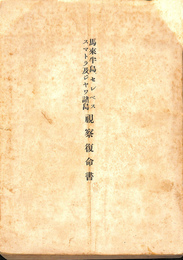 馬來半島セレベス
スマトラ及ジヤワ諸島
視察復命書